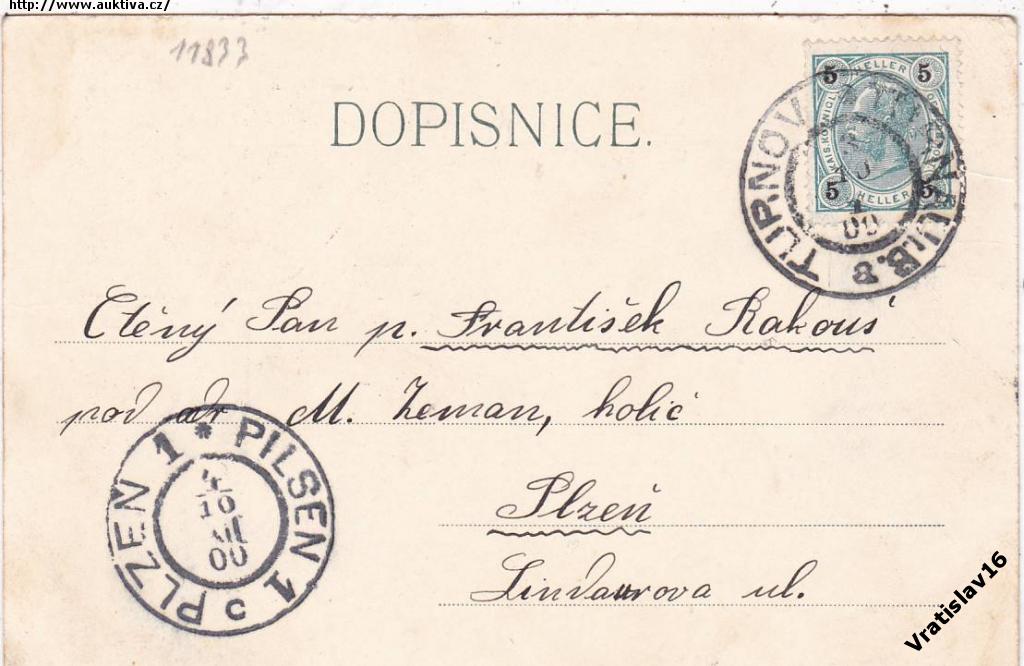 http://www.auktiva.cz/
11833
DOPISNICE.
5 HELLER 5
KAIS. KÖNIGL.
5 HELLER 5
TURNOV TURNAU B.
10
00
Ctěný Pan p. František Rakouś
pod adr M. Zeman, holič
PLZEN 1 * PILSEN 1
4
10
XII
00
Plzeň
Lindaurova ul.
Vratislav16